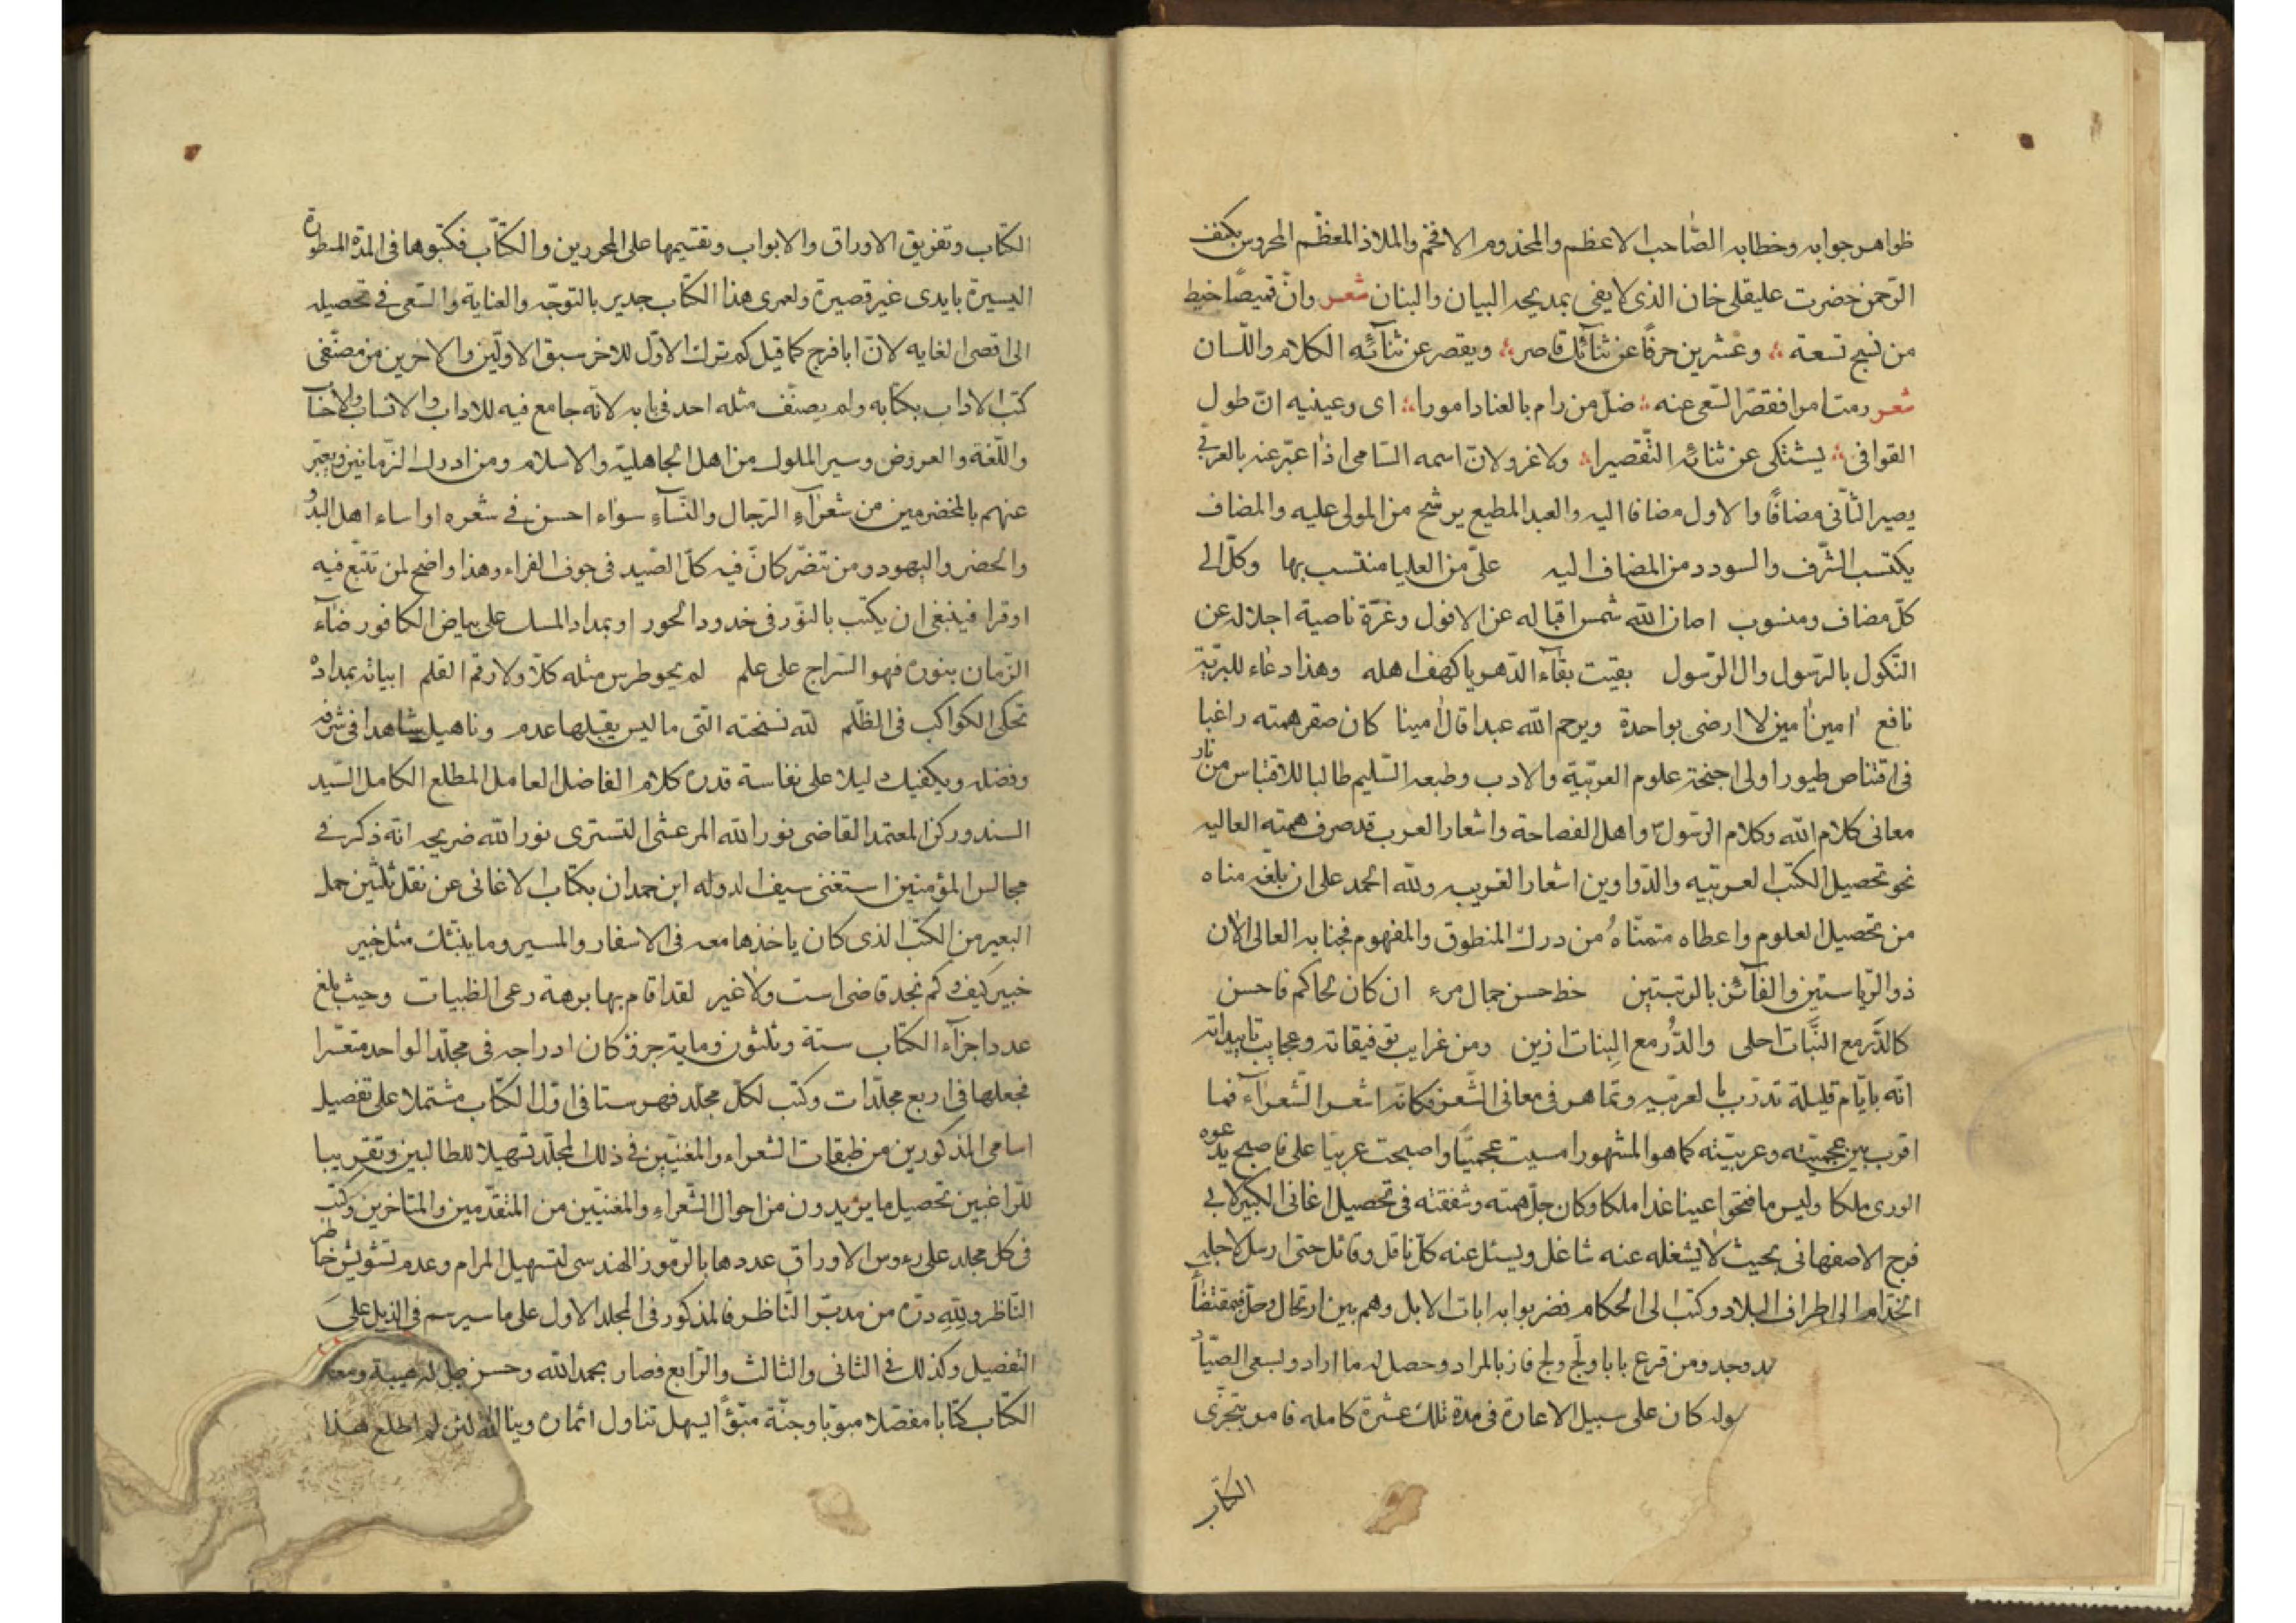 ظواهر جوابه وخطابه الصاحب الاعظم والمخدوم الافخم والملاذ المعظم المحروس بكنف
الرحمن حضرت عليقلى خان الذى لا يفى بمديحه البيان والبنان شعر وان قميصًا خيط
من نسج تسعة وعشرين حرفًا عن ثنائك قاصر ويقصر عن ثنائه الكلام واللسان
شعر رمت امرا فقصر السعى عنه ضل من رام بالعناد امورا اى وعينيه ان طول
القوافى يشتكى عن ثنائه التقصيرا ولا غرو لان اسمه السامى اذا عبر عنه بالعربى
يصير الثانى مضافًا والاول مضافا اليه والعبد المطيع يرشح من المولى عليه والمضاف
يكتسب الشرف والسودد من المضاف اليه علىّ من العليا منتسب بها وكل الى
كل مضاف ومنسوب اصان الله شمس اقباله عن الافول وغرة ناصية اجلاله عن
النكول بالرسول وال الرسول بقيت بقاء الدهر يا كهف اهله وهذا دعاء للبرية
نافع امين امين لا ارضى بواحدة ويرحم الله عبدا قال امينا كان صقر همته راغبا
فى اقتناص طيور اولى اجنحة علوم العربية والادب وطبعه السليم طالبا للاقتباس من نار
معانى كلام الله وكلام الرسول واهل الفصاحة واشعار العرب قد صرف همته العاليه
نحو تحصيل الكتب العربيه والدواوين اشعار الغريبه ولله الحمد على ان بلغه مناه
من تحصيل العلوم واعطاه متمناهُ من درك المنطوق والمفهوم فجنابه العالى الان
ذو الرياستين والفائز بالرتبتين خط حسن جمال مرء ان كان لحاكم فاحسن
كالدَّر مع النَّبات احلى والدُّر مع البِنات ازين ومن غرايب توفيقاته وعجايب تاييداته
انه بايام قليلة تدرّب بالعربيه وتماهر فى معانى الشعر فكانه اشعر الشعراء فما
اقرب بين عجميته وعربيته كما هو المشهور امسيت عجميًا واصبحت عربيا على فاصبح يدعوه
الورى ملكا وليس ما فتحوا عينا غدا ملكا وكان جل همته وشفقته فى تحصيل اغانى الكبير لابى
فرج الاصفهانى بحيث لا يشغله عنه شاغل ويسئل عنه كل ناقل وقائل حتى ارسل لاجله
الخدام الى اطراف البلاد وكتب الى الحكام فضربوا به ابات الابل وهم بين ارتحال وحل
وجد ومن قرع بابا ولجّ ولج فاز بالمراد وحصل له ما اراد ولسعى
كان على سبيل الاعارة فى مدة تلك عشرة كاملة فامر بتجزى
الكتاب
الكتاب وتفريق الاوراق والابواب وتقسيمها على المحررين والكتّاب فكتبوها فى المدة المسطورة
اليسيرة بايدى غير قصيرة ولعمرى هذا الكتاب جدير بالتوجه والعناية والسعى فى تحصيله
الى اقصى الغايه لان ابا فرج كما قيل كم ترك الاول للاخر سبق الاولين والاخرين من مصنفى
كتب الاداب بكتابه ولم يصنف مثله احد فى بابه لانه جامع فيه للاداب والانساب والاخبار
واللغة والعروض وسير الملوك من اهل الجاهلية والاسلام ومن ادرك الزمانين ويعبّر
عنهم بالمخضرمين من شعراء الرجال والنساء سواء احسن فى شعره او اساء اهل البدو
والحضر واليهود ومن تنصّر كانّ فيه كل الصيد فى جوف الفراء وهذا واضح لمن تتبع فيه
او قرا فينبغى ان يكتب بالنور فى خدود الحور او بمداد المسك على بياض الكافور ضاء
الزمان بنوره فهو السراج على علم لم يحو طرس مثله كلا ولا رقم القلم ابياته بمداده
تحكى الكواكب فى الظلم لله نسخته التى ما ليس يقبلها عدم وناهيك شاهدا فى شرفه
وفضله ويكفيك ليلا على نفاسة قدره كلام الفاضل العامل المطلع الكامل السيد
السند وركن المعتمد القاضى نور الله المرعشى التسترى نور الله ضريحه انه ذكر فى
مجالس المؤمنين استغنى سيف الدوله ابن حمدان بكتاب الاغانى عن نقل ثلثين حمل
البعير من الكتب الذى كان ياخذها معه فى الاسفار والمسير وما ينبئك مثل خبير
خبير كيف وكم نجد قاضى است ولا غير لقد اقام بها برهة رعى الظبيات وحيث بلغ
عدد اجزاء الكتاب ستة وثلثون وماية جزؤ كان ادراجه فى مجلد الواحد متعسّرا
فجعلها فى اربع مجلدات وكتب لكل مجلد فهرستا فى اول الكتاب مشتملا على تفصيل
اسامى المذكورين من طبقات الشعراء والمغنيين فى ذلك المجلد تسهيلا للطالبين وتقريبا
للراغبين تحصيل ما يريدون من احوال الشعراء والمغنيين من المتقدمين والمتاخرين وكتب
فى كل مجلد على رءوس الاوراق عددها بالرموز الهندسى لتسهيل المرام وعدم تشويش خاطر
الناظر ولله دره من مدبر الناظر فالمذكور فى المجلد الاول على ما سيرسم فى الذيل على
التفصيل وكذلك فى الثانى والثالث والرابع فصار بحمد الله وحسن
الكتاب كتابا مفصلا مبوّبا وجنة متبوّأ يسهل تناول اثماره وينا لئن لم اطلع هذا